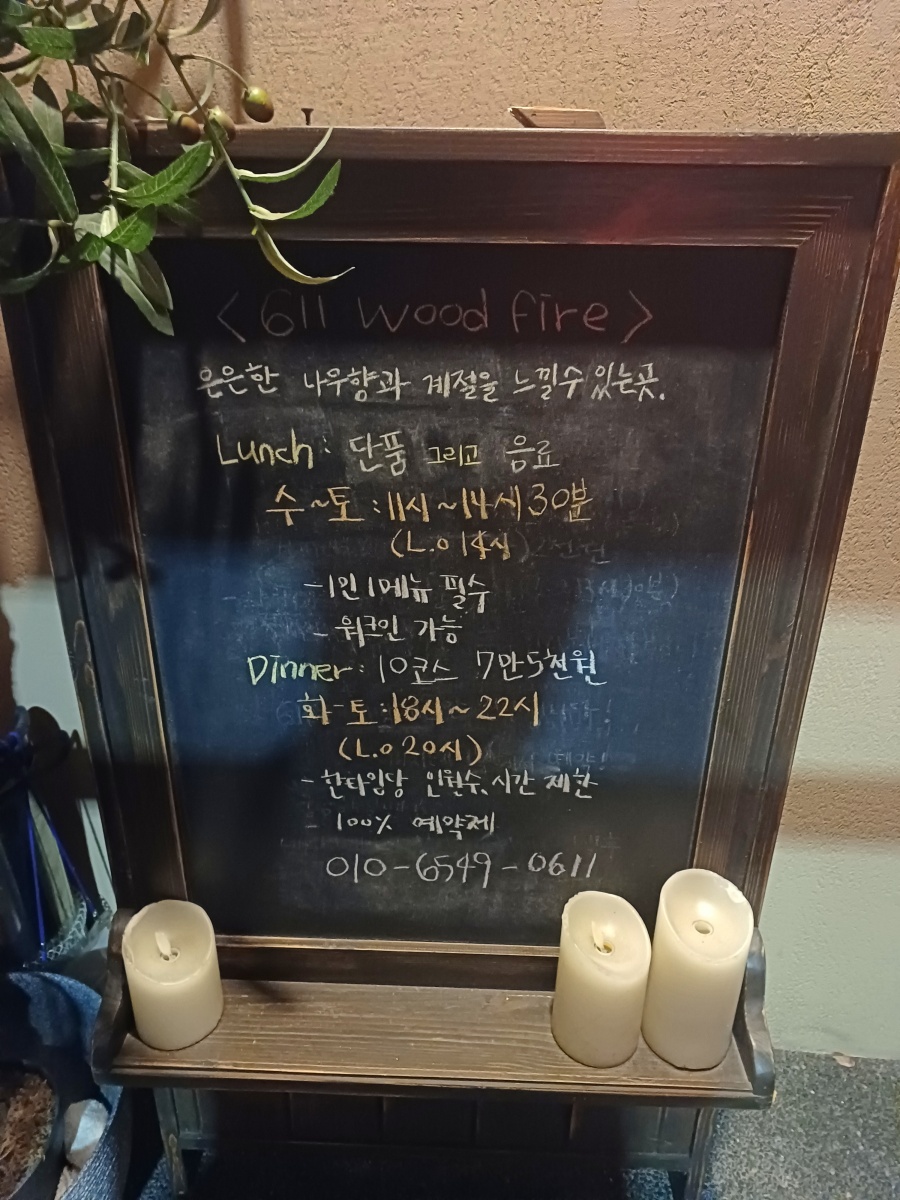 <611 wood fire>
은은한 나무향과 계절을 느낄수 있는곳.
Lunch: 단품 그리고 음료
수~토:11시~14시30분
(L.o 14시)
-1인 1메뉴 필수
- 워크인 가능
Dinner: 10코스 7만5천원
화-토:18시~22시
(L.o 20시)
-한타임당 인원수.시간 제한
- 100% 예약제
010-6549-0611